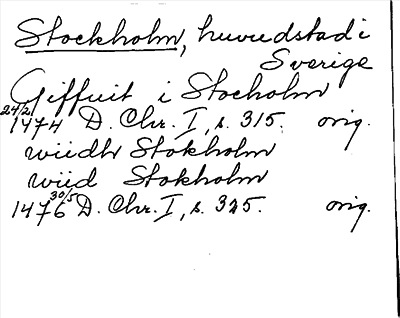 Stockholm, huvudstad i
Sverige
Giffuit i Stocholm
24/2 1474 D. Chr. I, s. 315. orig.
wiidh Stokholm
wiid Stokholm
30/5 1476 D. Chr. I, s. 325. orig.